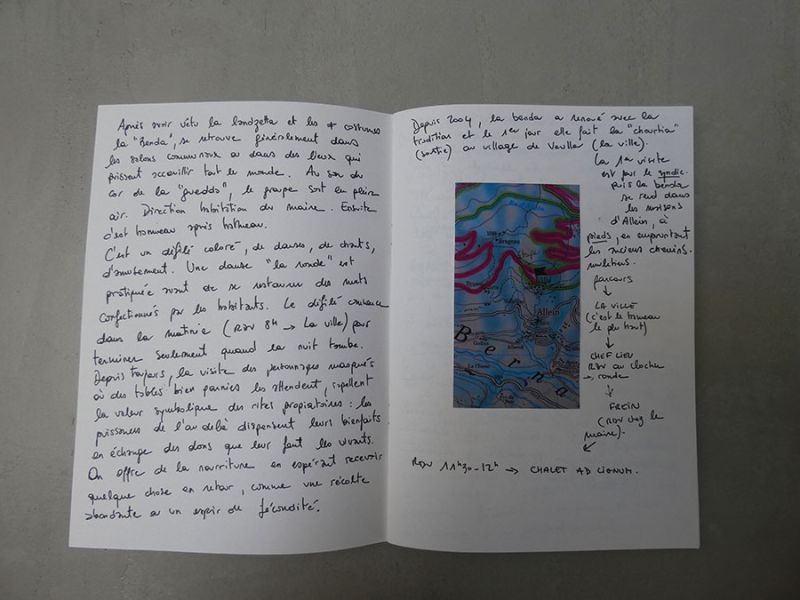 Après avoir vêtu la landzetta et les # costumes
la "Benda", se retrouve généralement dans
les salons communaux ou dans des lieux qui
puissent accueillir tout le monde. Au son du
cor de la "guedda", le groupe sort en plein
air. Direction habitation du maire. Ensuite
c'est hameau après hameau.
C'est un défilé coloré, de danses, de chants,
d'amusement. Une danse "la ronde" est
pratiquée avant de se restaurer des mets
confectionnés par les habitants. Le défilé commence
dans la matinée (RDV 8h → La ville) pour
terminer seulement quand la nuit tombe.
Depuis toujours, la visite des personnages masqués
où des tables bien garnies les attendent, rappellent
la valeur symbolique des rites propiatoires : les
puissances de l'au delà dispensent leurs bienfaits
en échange des dons que leur font les vivants.
On offre de la nourriture en espérant recevoir
quelque chose en retour, comme une récolte
abondante ou un espoir de fécondité.
Depuis 2004, la benda a renoué avec la
tradition et le 1er jour elle fait la "chourtia"
(sortie) au village de Vaulla (la ville).
La 1ère visite
est pour le syndic.
puis la benda
se rend dans
les maisons
d'Allein, à
pieds, en empruntant
les anciens chemins
muletiers.
parcours
↓
LA VILLE
(c'est le hameau
le plus haut)
↓
CHEF LIEU
RDV au clocher
→ ronde
↓
FREIN
(RDV chez le
maire).
RDV 11h30-12h → CHALET AD LIONUM.
Allein
Berna